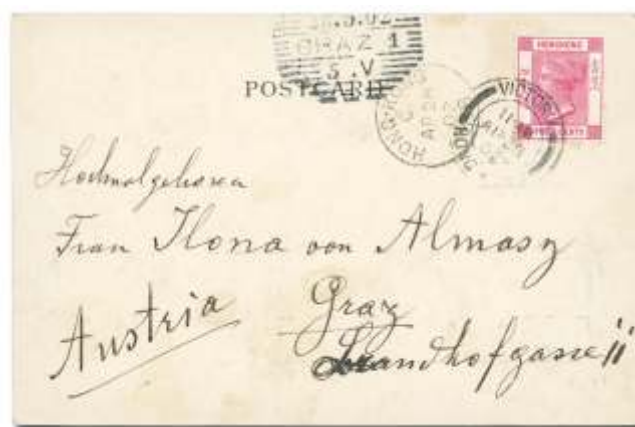 GRAZ 1
5.V
POSTCARD
HONGKONG
HONG-KONG
VICTORIA
HONG KONG
Hochwolgeboren
Frau Ilona von Almasy
Graz
Austria
Brandhofgasse 11